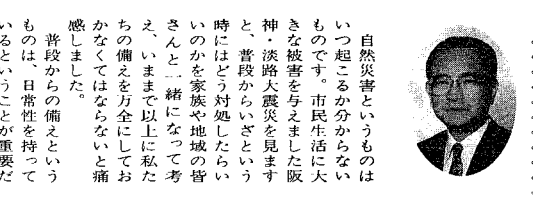 自然災害というものは
いつ起こるか分からない
ものです。市民生活に大
きな被害を与えました阪
神・淡路大震災を見ます
と、普段からいざという
時にはどう対処したらい
いのかを家族や地域の皆
さんと一緒になって考
え、いままで以上に私た
ちの備えを万全にしてお
かなくてはならないと痛
感しました。
普段からの備えという
ものは、日常性を持って
いるということが重要だ